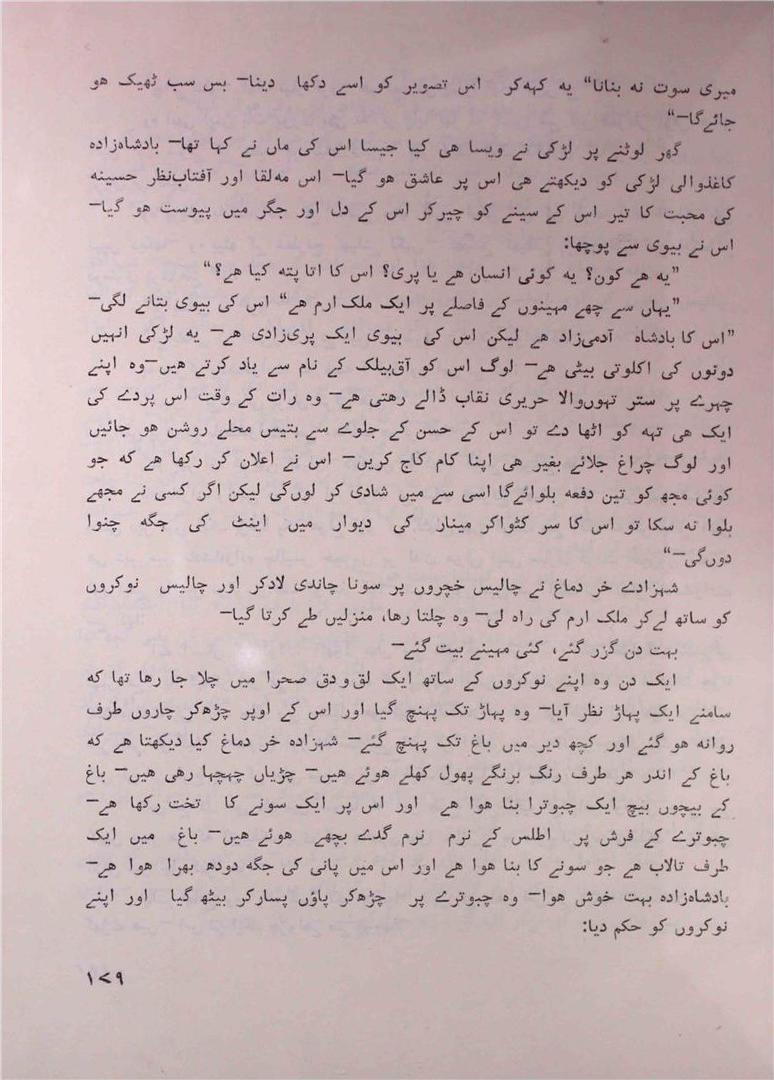 میری سوت نه بنانا“ یه کہه‌کر اس تصویر کو اسے دکھا دینا— بس سب ٹھیک هو
جائے‌گا—“
گھر لوٹنے پر لڑکی نے ویسا هی کیا جیسا اس کی ماں نے کہا تھا— بادشاه‌زاده
کاغذوالی لڑکی کو دیکھتے هی اس پر عاشق هو گیا— اس مه‌لقا اور آفتاب‌نظر حسینه
کی محبت کا تیر اس کے سینے کو چیرکر اس کے دل اور جگر میں پیوست هو گیا—
اس نے بیوی سے پوچھا:
”یه هے کون؟ یه کوئی انسان هے یا پری؟ اس کا اتا پته کیا هے؟“
”یہاں سے چھے مہینوں کے فاصلے پر ایک ملک ارم هے“ اس کی بیوی بتانے لگی—
”اس کا بادشاه آدمی‌زاد هے لیکن اس کی بیوی ایک پری‌زادی هے— یه لڑکی انہیں
دونوں کی اکلوتی بیٹی هے— لوگ اس کو آق‌بیلک کے نام سے یاد کرتے هیں—وه اپنے
چہرے پر ستر تہوں‌والا حریری نقاب ڈالے رهتی هے— وه رات کے وقت اس پردے کی
ایک هی تہه کو اٹھا دے تو اس کے حسن کے جلوے سے بتیس محلے روشن هو جائیں
اور لوگ چراغ جلائے بغیر هی اپنا کام کاج کریں— اس نے اعلان کر رکھا هے که جو
کوئی مجھ کو تین دفعه بلوائے‌گا اسی سے میں شادی کر لوں‌گی لیکن اگر کسی نے مجھے
بلوا نه سکا تو اس کا سر کٹواکر مینار کی دیوار میں اینٹ کی جگه چنوا
دوں‌گی—“
شہزادے خر دماغ نے چالیس خچروں پر سونا چاندی لادکر اور چالیس نوکروں
کو ساتھ لے‌کر ملک ارم کی راه لی— وه چلتا رها، منزلیں طے کرتا گیا—
بہت دن گزر گئے، کئی مہینے بیت گئے—
ایک دن وه اپنے نوکروں کے ساتھ ایک لق‌و‌دق صحرا میں چلا جا رها تھا که
سامنے ایک پہاڑ نظر آیا— وه پہاڑ تک پہنچ گیا اور اس کے اوپر چڑھ‌کر چاروں طرف
روانه هو گئے اور کچھ دیر میں باغ تک پہنچ گئے— شہزاده خر دماغ کیا دیکھتا هے که
باغ کے اندر هر طرف رنگ برنگے پھول کھلے هوئے هیں— چڑیاں چہچہا رهی هیں— باغ
کے بیچوں بیچ ایک چبوترا بنا هوا هے اور اس پر ایک سونے کا تخت رکھا هے—
چبوترے کے فرش پر اطلس کے نرم نرم گدے بچھے هوئے هیں— باغ میں ایک
طرف تالاب هے جو سونے کا بنا هوا هے اور اس میں پانی کی جگه دودھ بھرا هوا هے—
بادشاه‌زاده بہت خوش هوا— وه چبوترے پر چڑھ‌کر پاؤں پسارکر بیٹھ گیا اور اپنے
نوکروں کو حکم دیا:
۱۷۹